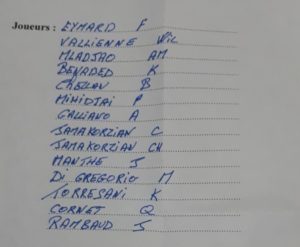 Joueurs : EYMARD F
VALLIENNE Wic
MLADJAO AM
BENADED K
CHELLAV B
MIHIDJAI P
GALLIANO A
SAMAKORZIAN C
SAMAKORZIAN CH
MANTHE J
DI GREGORIO M
TORRESANI K
CORNET Q
RAMBAUD S